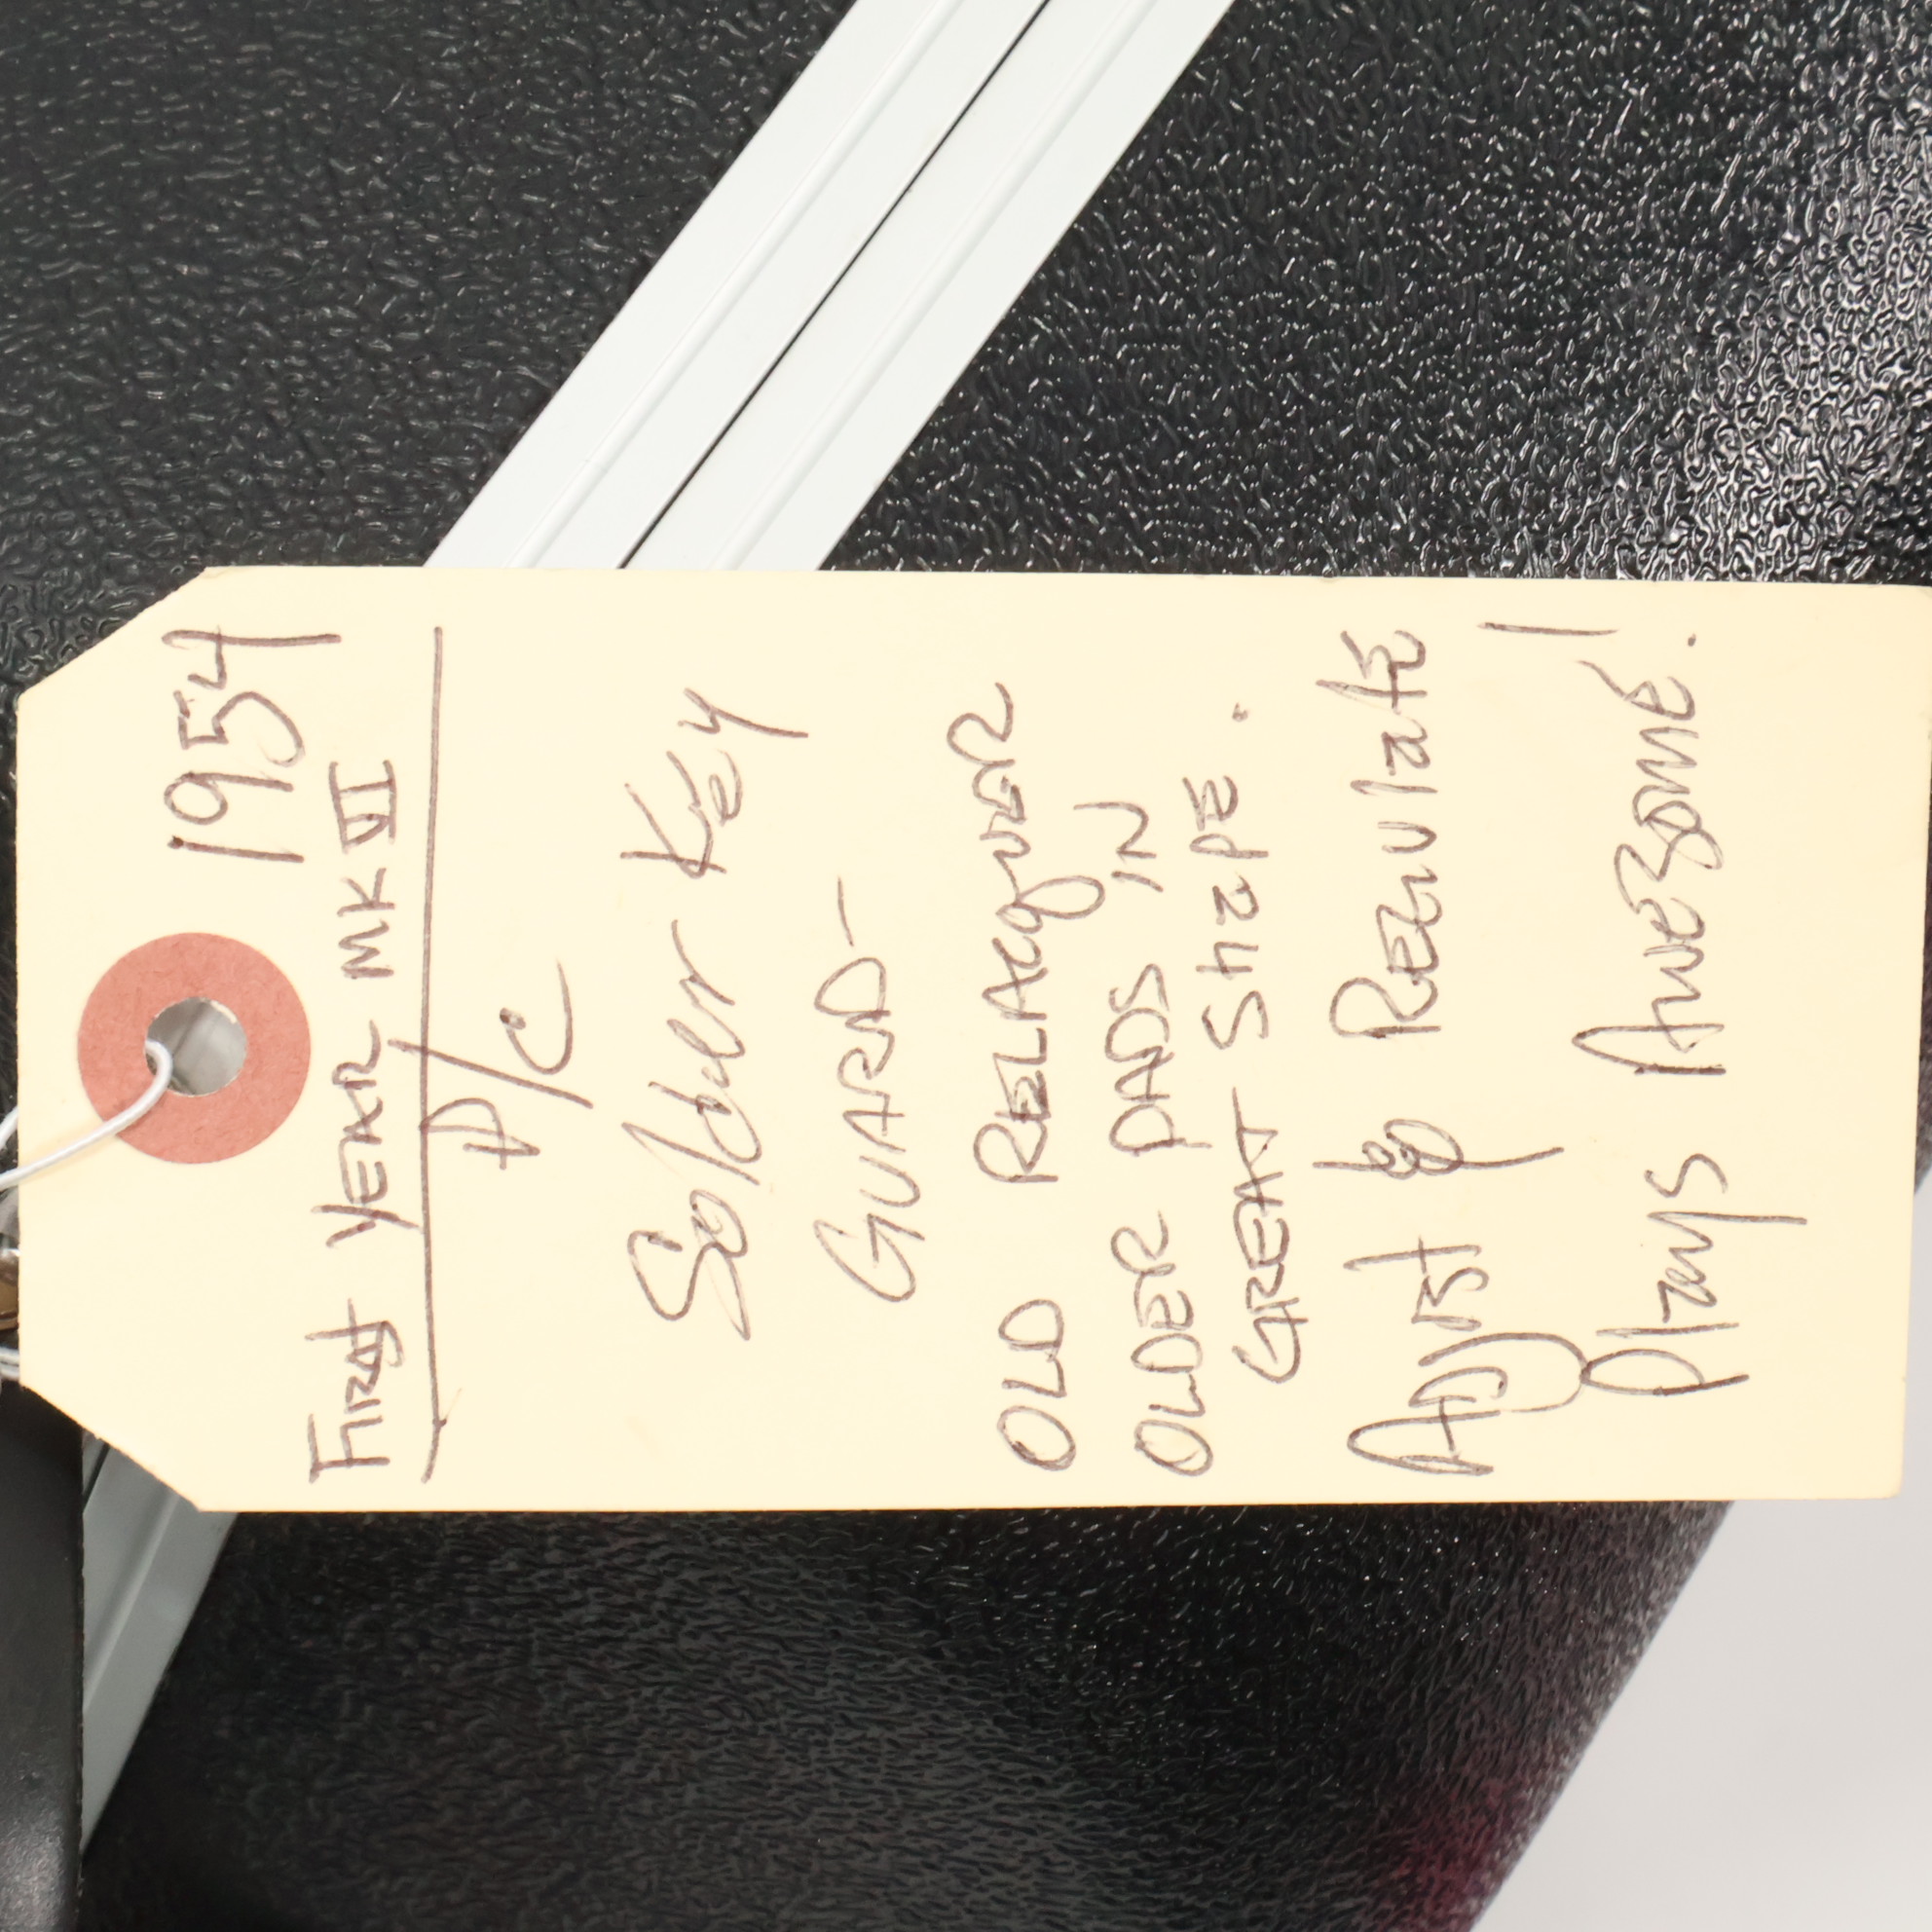 1954
First YEAR MK VI
P/C
Solder Key
GUARD-
OLD RELACQUER
OLDER PADS IN
GREAT ShapE.
Adjust & REGulatE
plays AwESOME!